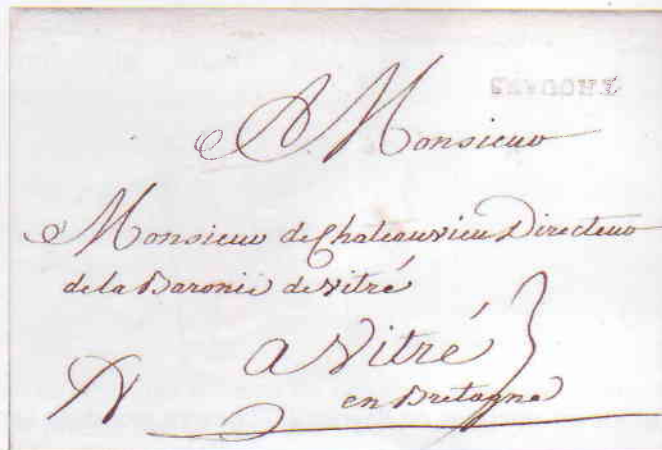 A Monsieur
Monsieur de Chateauvieu Directeur
de la Baronie de Vitré
a Vitré
en Bretagne